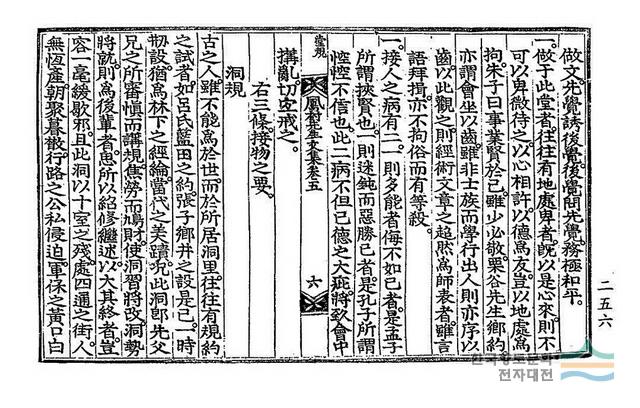 二五六
做文先覺誘後覺後覺問先覺務極和平
一做于此堂者往往有地處卑者旣以是心來則不
可以卑微待之以心相許以德爲友豈以地處爲
拘朱子曰事業賢於己雖少必敬栗谷先生鄕約
亦謂會坐以齒雖非士族而學行出人則亦序以
齒以此觀之則經術文章之超然爲師表者雖言
語拜揖亦不拘俗而有等殺
一接人之病有二一則多能者侮不如己者是孟子
所謂挾賢也一則迷鈍而惡勝己者是孔子所謂
悾悾不信也此二病不但己德之大疵將致會中
搆亂切宜戒之
右三條接物之要
堂規 鳳村先生文集卷五 六
洞規
古之人雖不能爲於世而於所居洞里往往有規約
之試者如呂氏藍田之約張子鄕井之設是已一時
刱設猶爲林下之經綸當代之美蹟況此洞卽先父
兄之所審愼而講規焦勞而鳩財使洞習將改洞勢
將就則爲後輩者思所以紹修繼述以大其終者豈
容一毫緩歇邪且此洞以十室之殘處四通之街人
無恆產朝聚暮散行路之公私侵迫軍保之黃口白
한국향토문화
전자대전